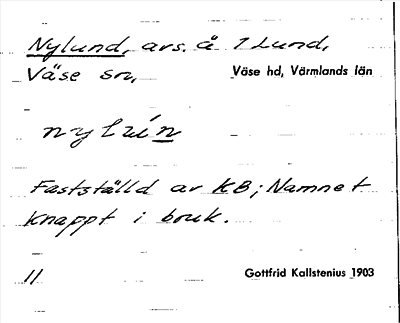 Nylund, avs. å 1 Lund,
Väse sn, Väse hd, Värmlands län
Fastställd av KB; Namnet
knappt i bruk.
11 Gottfrid Kallstenius 1903